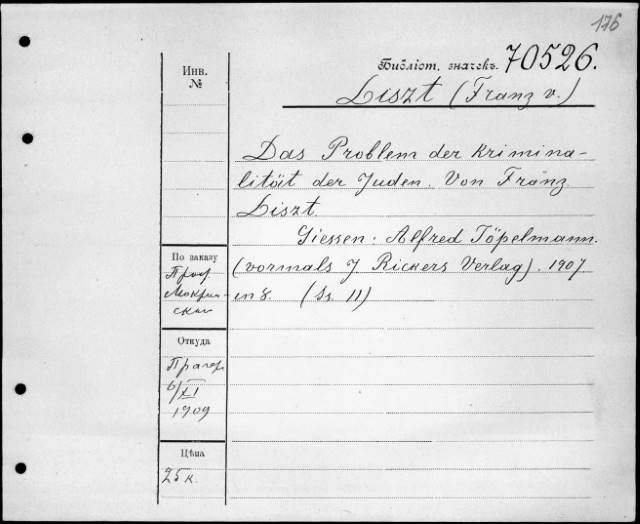 176
Библіот. значекъ. 70526.
Инв.
№
Liszt (Franz v.)
Das Problem der Krimina-
lität der Juden. Von Franz
Liszt.
Giessen: Alfred Töpelmann.
(vormals J. Rickers Verlag). 1907.
in 8. (Ss. 11)
По заказу
Проф
Мокрин-
скаго
Откуда
Прагер.
6/XI
1909
Цѣна
25 к.